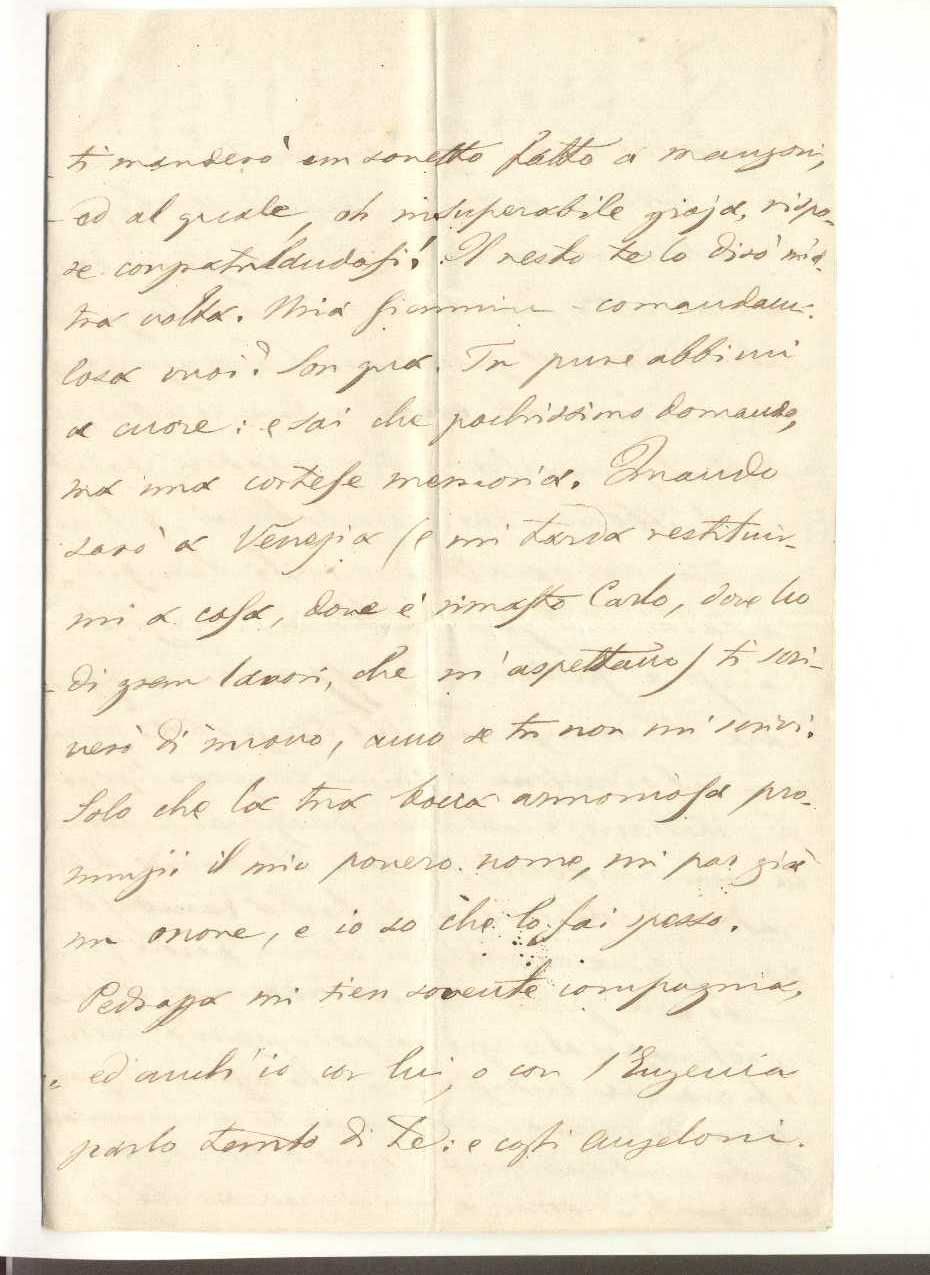 ti manderò un sonetto fatto a Manzoni,
ed al quale, oh insuperabile gioja, rispo-
se congratulandosi! Il resto te lo dirò un'al-
tra volta. Mia Giannina comandami:
Cosa vuoi? Son qua. Tu pure abbimi
a cuore: e sai che pochissimo domando,
ma una cortese memoria. Quando
sarò a Venezia (e mi tarda restituir-
mi a casa, dove è rimasto Carlo, dove ho
di gran lavori, che m'aspettano) ti scri-
verò di nuovo, anco se tu non mi scrivi.
Solo che la tua bocca armoniosa pro-
nunzii il mio povero nome, mi par già
un onore, e io so che lo fai spesso.
mi tien sovente compagnia,
ed anch'io con lui, o con l'Eugenia
parlo tanto di te: e così Angeloni.